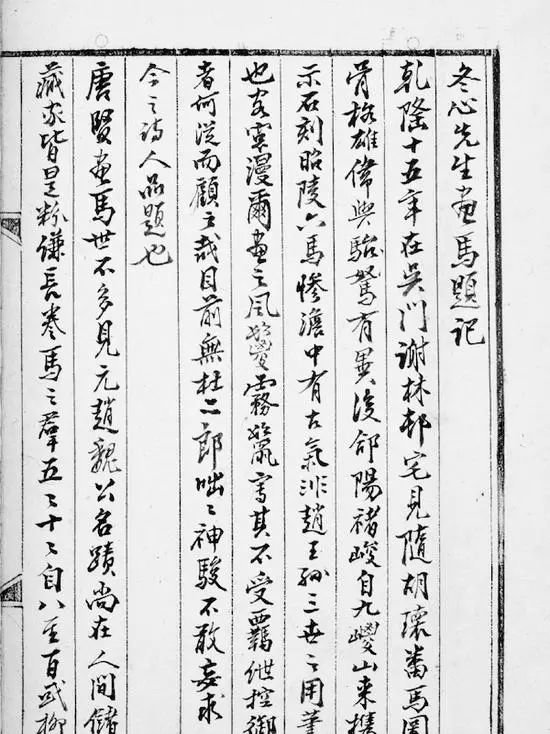 冬心先生画馬題記
乾隆十五年在吳门谢林邨宅見隨胡瓌畨馬圖
骨格雄偉與駘駑有異後郃陽褚峻自九嵕山来攜
示石刻昭陵六馬慘澹中有古氣非趙王孫三世之用筆
也客窓漫爾画之風鬉霧鬣寫其不受覊絏控御
者何從而顧之哉目前無杜二郎咄〻神駿不敢妄求
今之詩人品題也
唐賢画馬世不多見元趙魏公名蹟尚在人間儲
藏家皆是粉縑長卷馬之羣五〻十〻自八至百或柳